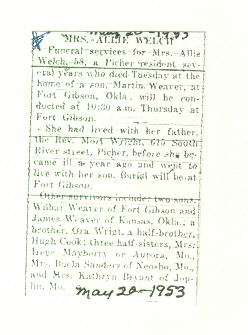 MRS. ALLIE WELCH
Funeral services for Mrs. Allie
Welch, 58, a Picher resident sev-
eral years who died Tuesday at the
home of a son, Martin Weaver, at
Fort Gibson, Okla., will be con-
ducted at 10:30 a.m. Thursday at
Fort Gibson.
She had lived with her father,
the Rev. Mort Wright, 615 South
River street, Picher, before she be-
came ill a year ago and went to
live with her son. Burial will be at
Fort Gibson.
Other survivors include: two sons,
Wilbur Weaver of Fort Gibson and
James Weaver of Kansas, Okla.; a
brother, Ora Wright, a half-brother,
Hugh Cook; three half-sisters, Mrs.
Irene Mayberry of Aurora, Mo.,
Mrs. Buela Sanders of Neosho, Mo.,
and Mrs. Kathryn Bryant of Jop-
lin, Mo. May 20-1953